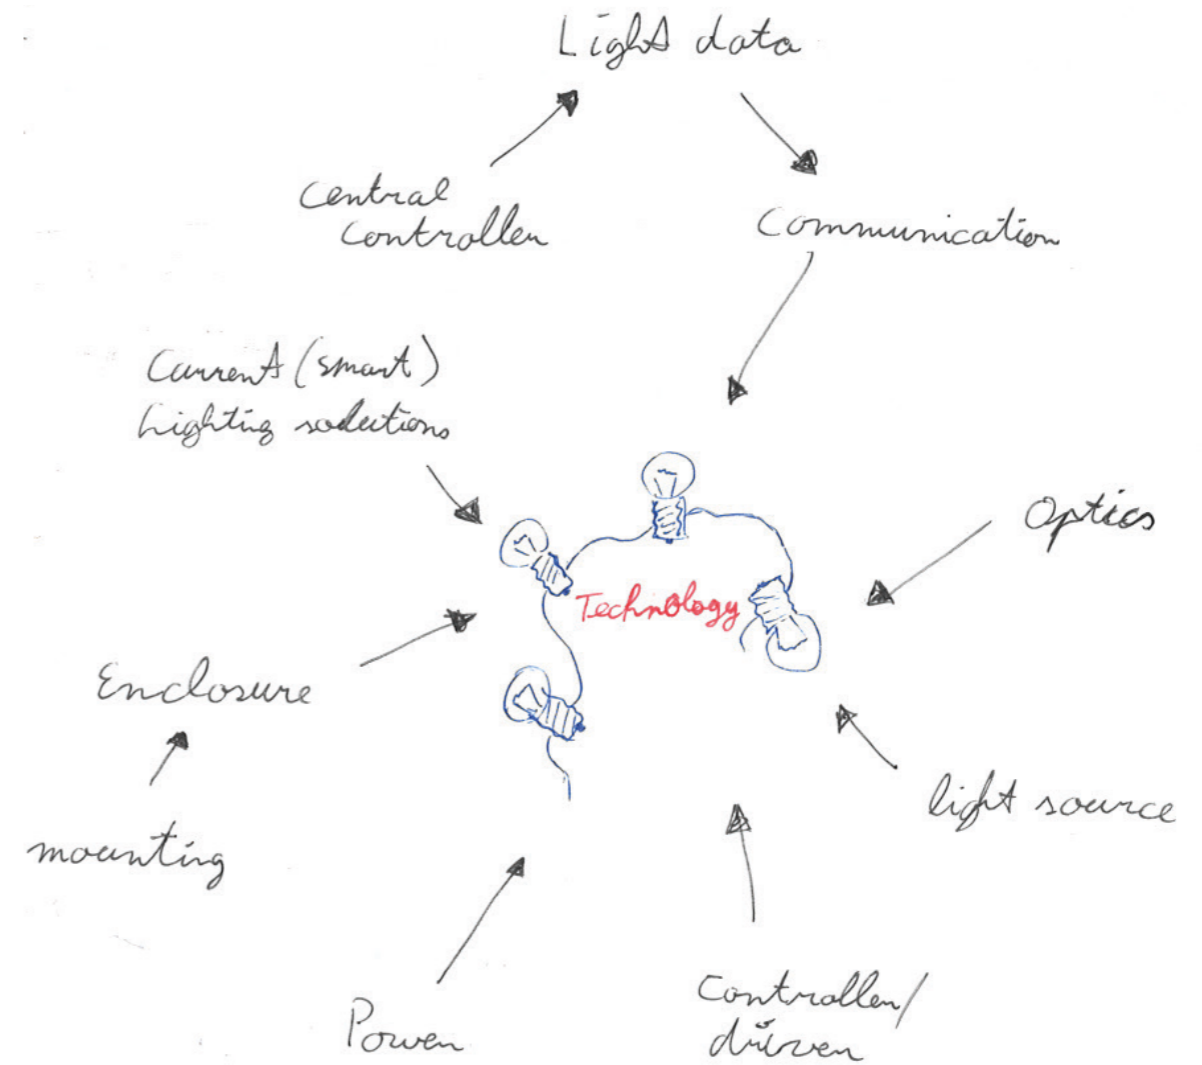 Light data
Central
Controller
Communication
Current (smart)
Lighting solutions
Optics
Technology
Enclosure
light source
mounting
Controller/
driver
Power